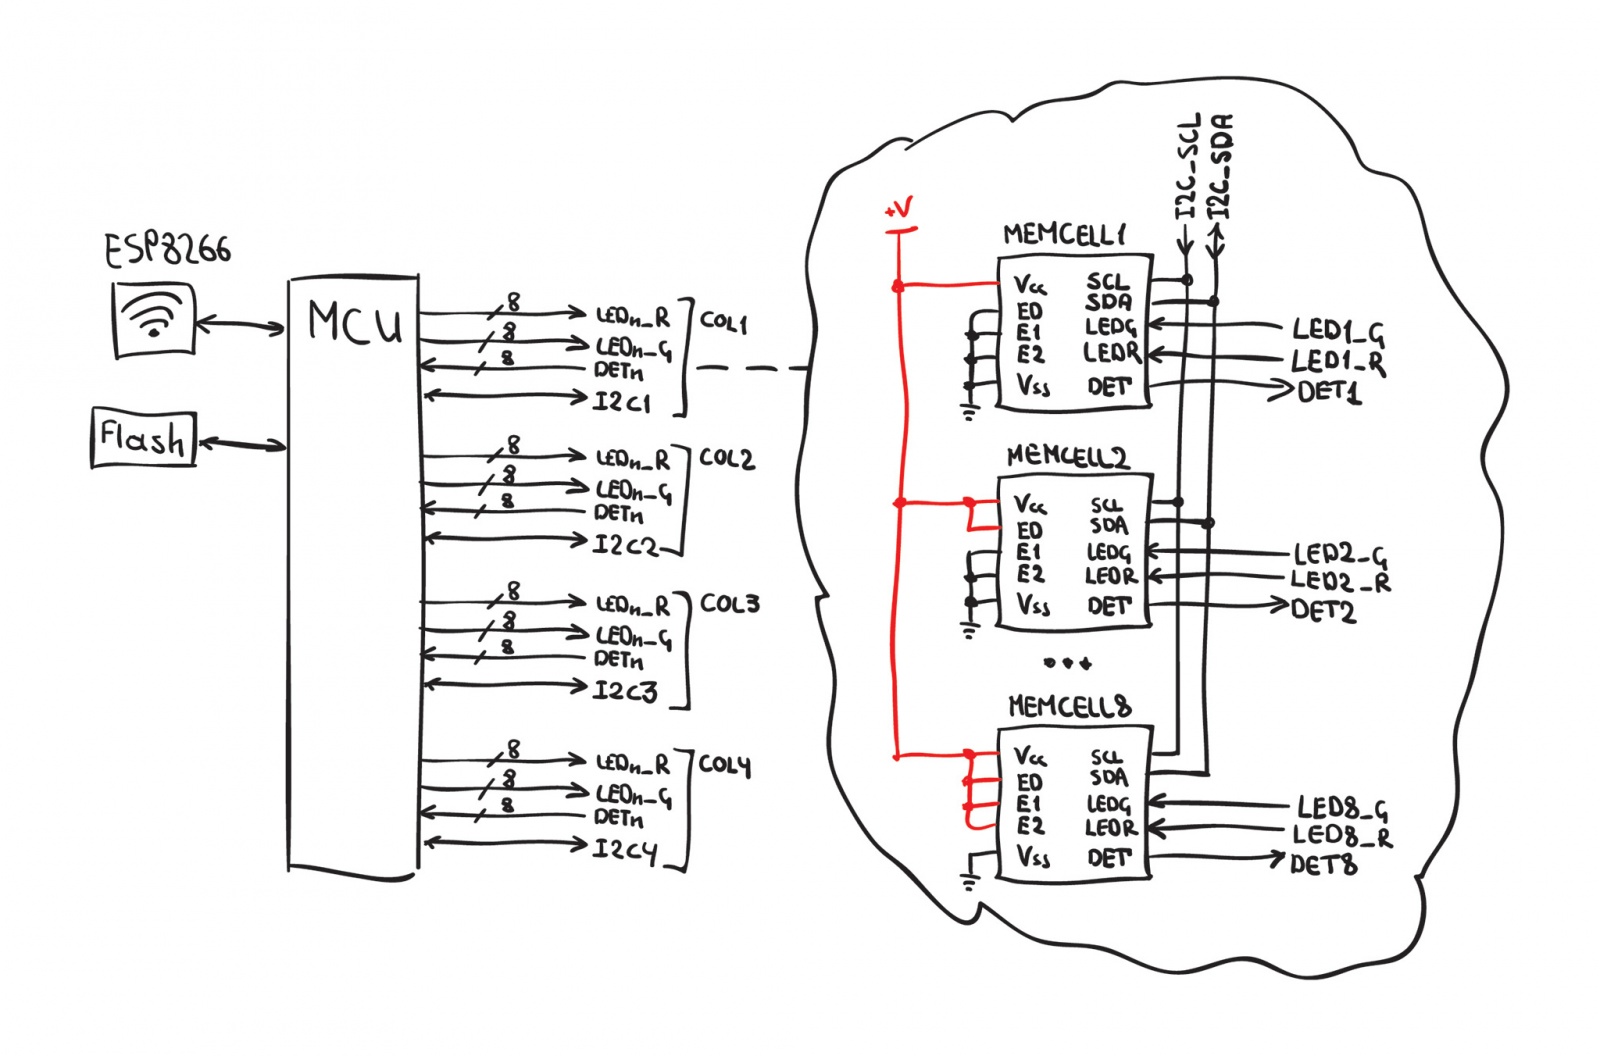 ESP8266
MCU
Flash
8 LEDn_R
8 LEDn_G
8 DETn
I2C1
COL1
8 LEDn_R
8 LEDn_G
8 DETn
I2C2
COL2
8 LEDn_R
8 LEDn_G
8 DETn
I2C3
COL3
8 LEDn_R
8 LEDn_G
8 DETn
I2C4
COL4
+V
I2C_SCL
I2C_SDA
MEMCELL1
Vcc SCL
E0 SDA
E1 LEDG LED1_G
E2 LEDR LED1_R
Vss DET DET1
MEMCELL2
Vcc SCL
E0 SDA
E1 LEDG LED2_G
E2 LEDR LED2_R
Vss DET DET2
...
MEMCELL8
Vcc SCL
E0 SDA
E1 LEDG LED8_G
E2 LEDR LED8_R
Vss DET DET8